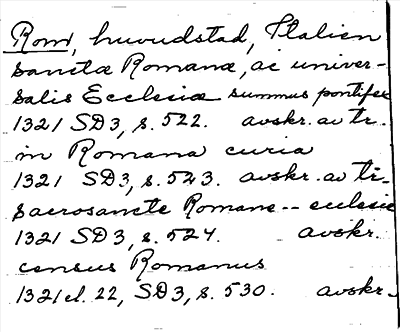 Rom, huvudstad, Italien
sanctæ Romanæ, ac univer-
salis Ecclesiæ summus pontifex
1321 SD3, s. 522. avskr. av tr.
in Romana curia
1321 SD3, s. 523. avskr. av tr.
sacrosancte Romane -- ecclesie
1321 SD3, s. 524. avskr.
census Romanus
1321 el. 22, SD3, s. 530. avskr.